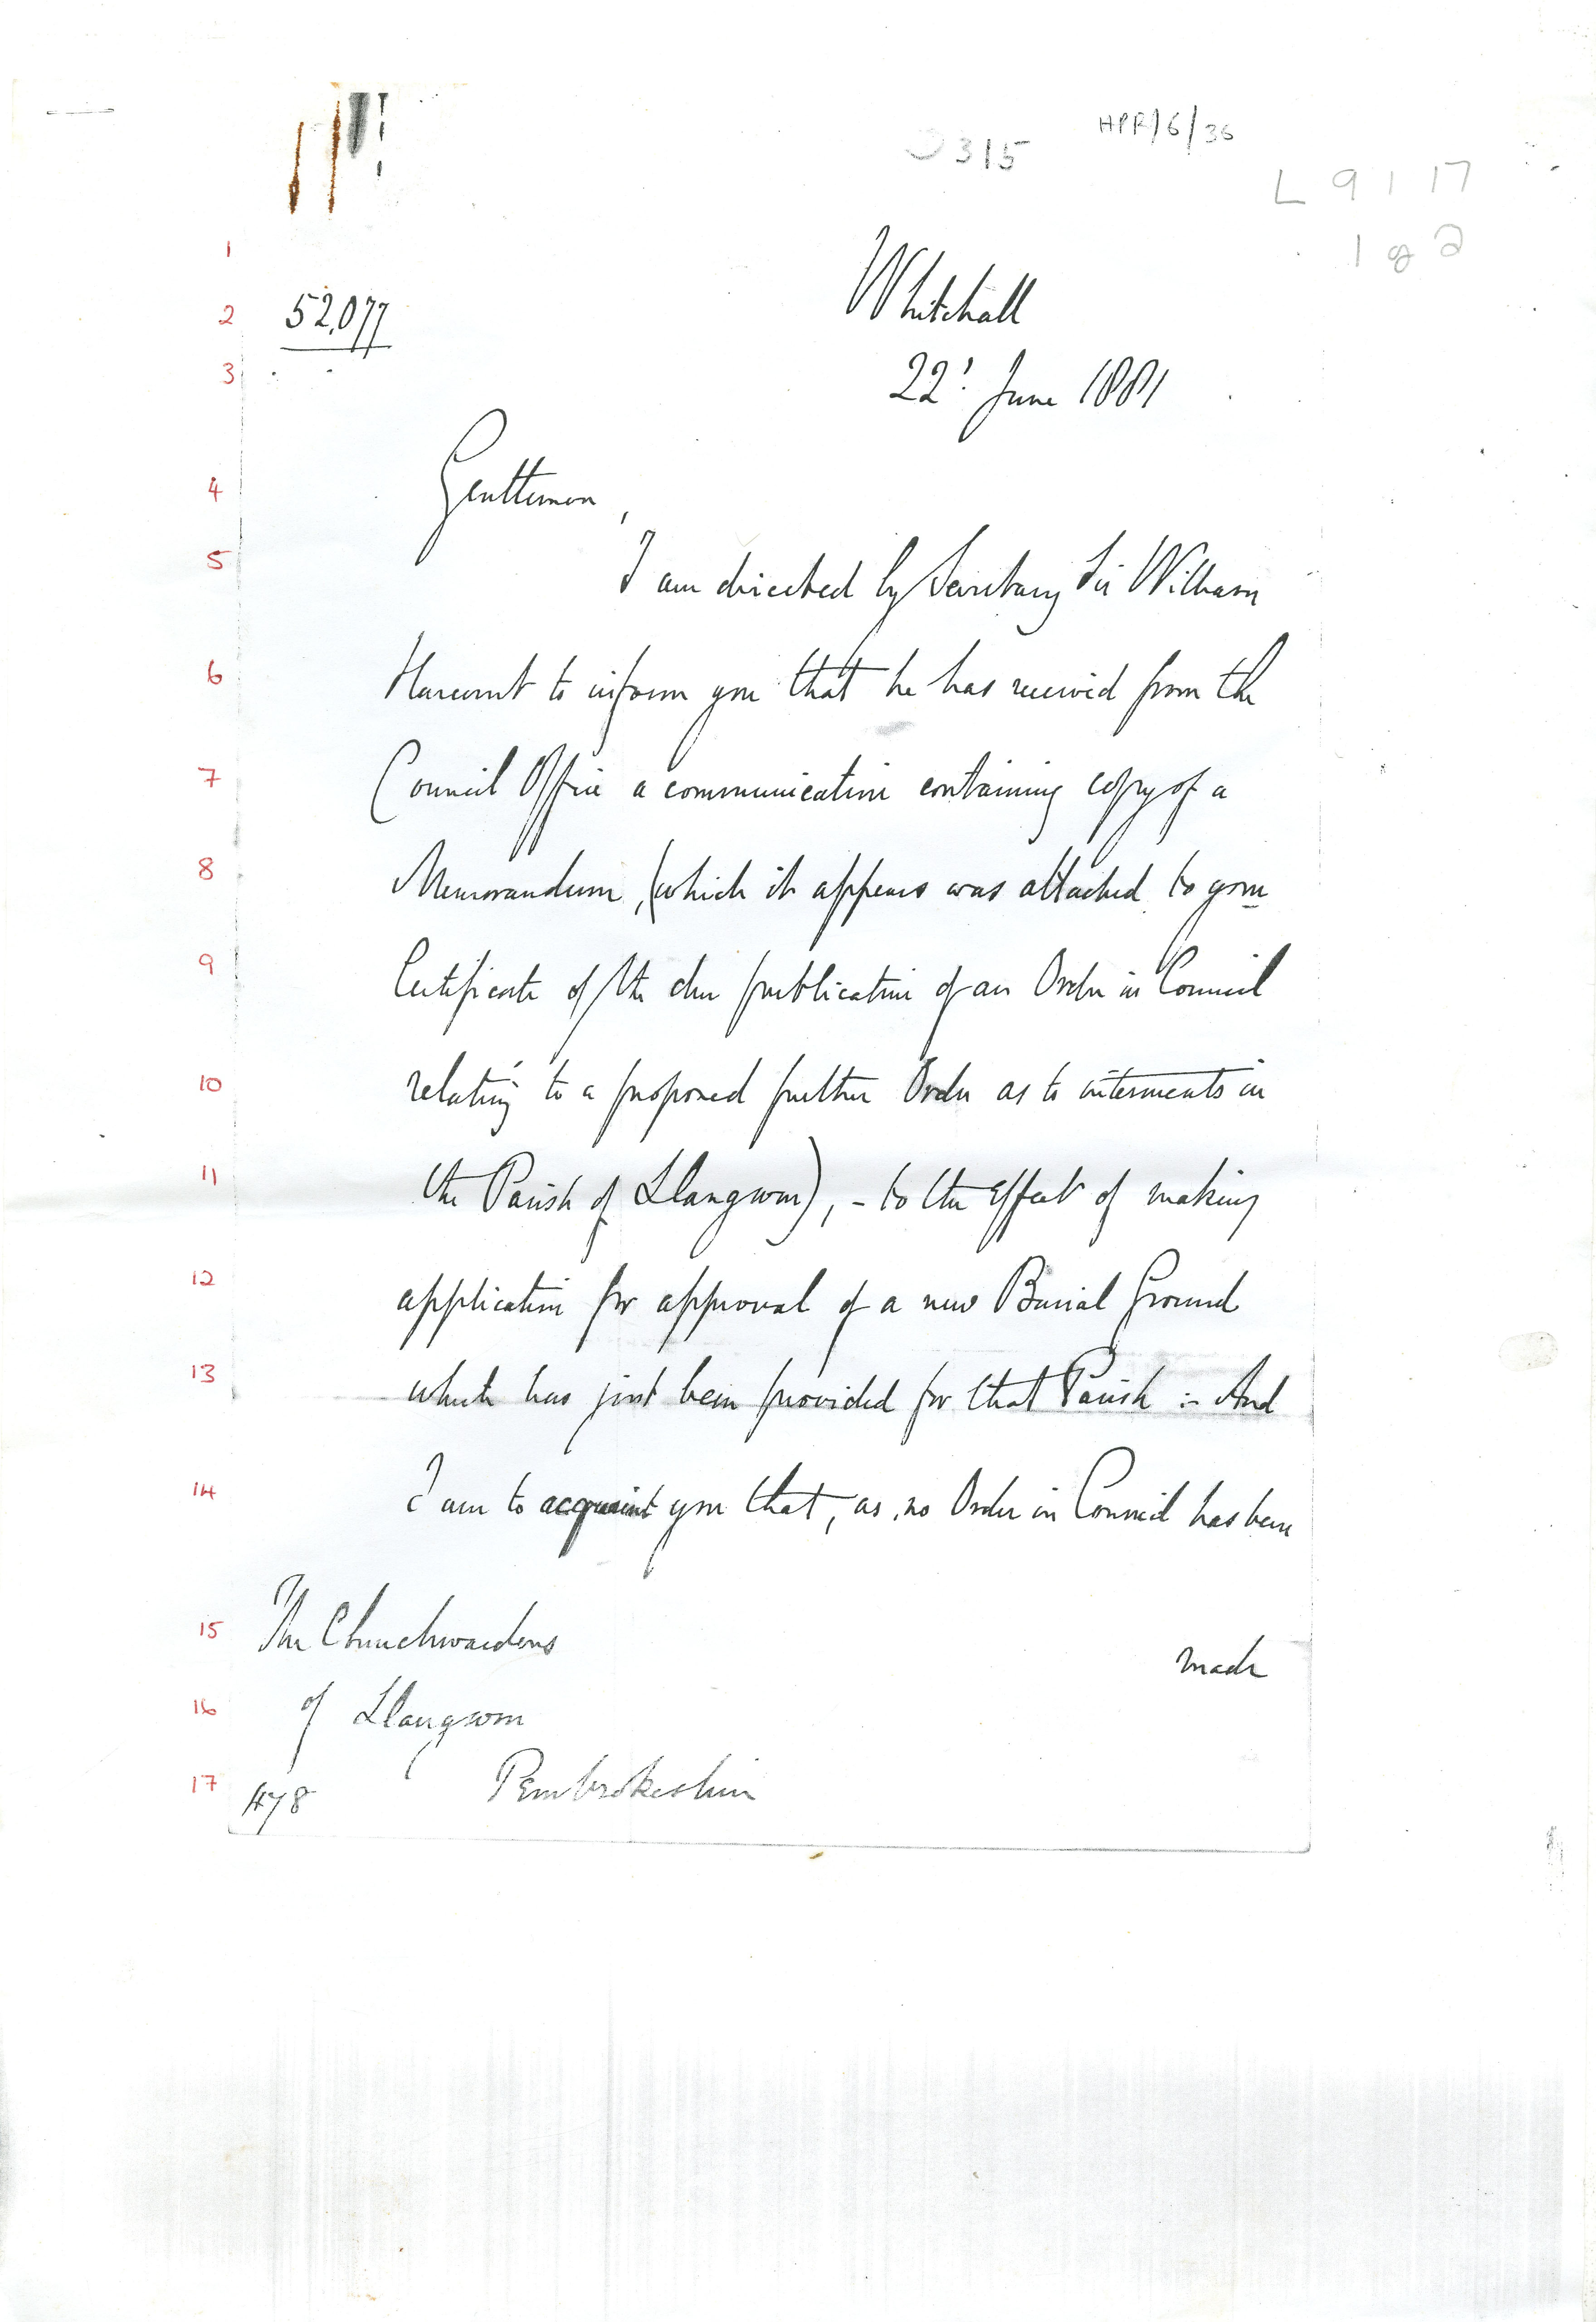 HPR/6/36
315
L 9117
1 of 2
1
Whitehall
2 52,077
3 22d June 1881
4 Gentlemen,
5 I am directed by Secretary Sir William
6 Harcourt to inform you that he has received from the
7 Council Office a communication containing copy of a
8 Memorandum, (which it appears was attached to your
9 Certificate of the due publication of an Order in Council
10 relating to a proposed further Order as to interments in
11 the Parish of Llangwm), - to the effect of making
12 application for approval of a new Burial Ground
13 which has just been provided for that Parish :- And
14 I am to acquaint you that, as no Order in Council has been
15 The Churchwardens
made
16 of Llangwm
17 Pembrokeshire
478